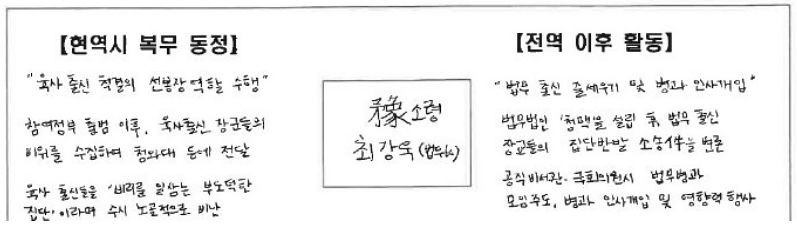 【현역시 복무 동정】
"육사 출신 척결의 선봉장 역할 수행"
참여정부 출범 이후, 육사출신 장군들의
비위를 수집하여 청와대 등에 전달
육사 출신들을 '비리를 일삼는 부도덕한
집단'이라며 수시 노골적으로 비난
豫소령
최강욱(법무)
【전역 이후 활동】
"법무 출신 줄세우기 및 병과 인사개입"
법무법인 '청맥'을 설립 후, 법무 출신
장교들의 집단반발 소송件을 변론
공직비서관·국회의원시 법무병과
모임주도, 병과 인사개입 및 영향력 행사